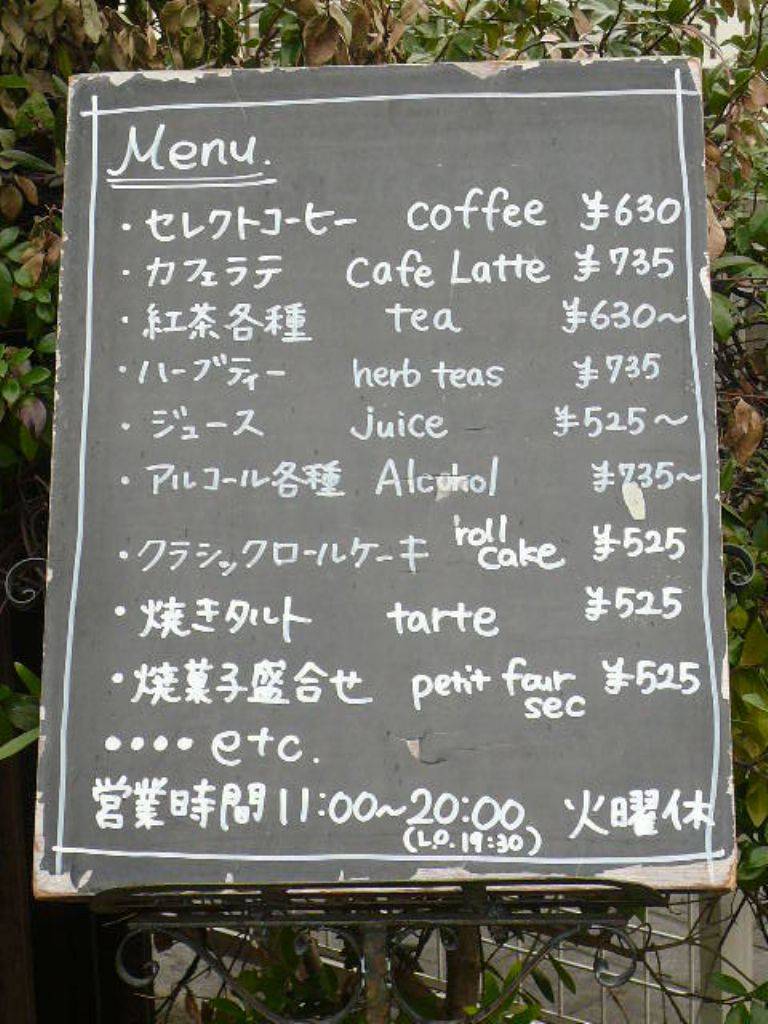 Menu.
・セレクトコーヒー coffee ¥630
・カフェラテ Cafe Latte ¥735
・紅茶各種 tea ¥630~
・ハーブティー herb teas ¥735
・ジュース juice ¥525~
・アルコール各種 Alcohol ¥735~
・クラシックロールケーキ roll cake ¥525
・焼きタルト tarte ¥525
・焼菓子盛合せ petit four sec ¥525
•••• etc.
営業時間 11:00~20:00 火曜休
(L.O. 19:30)